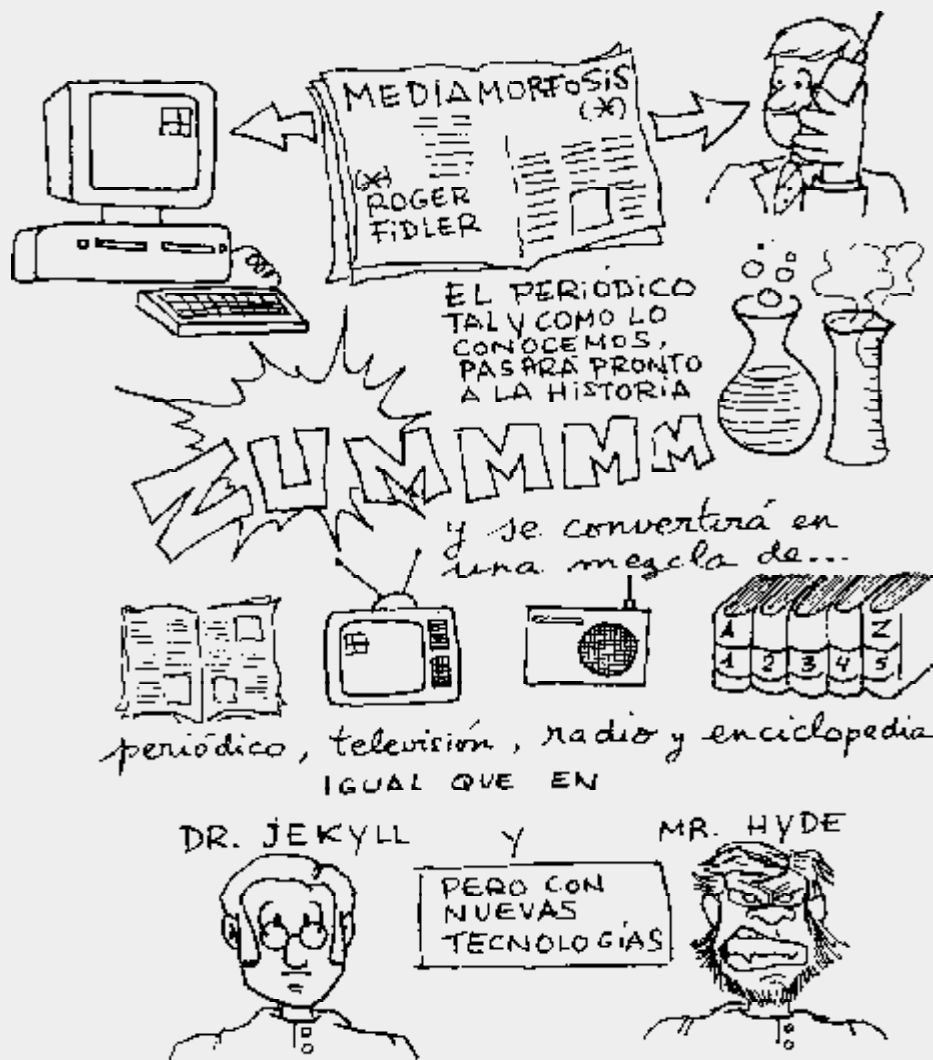 MEDIAMORFOSIS
(*)
(*)
ROGER
FIDLER
EL PERIÓDICO
TAL Y COMO LO
CONOCEMOS,
PASARÁ PRONTO
A LA HISTORIA
ZUMMMMM
y se convertirá en
una mezcla de...
A Z
1 2 3 4 5
periódico, televisión, radio y enciclopedia
IGUAL QUE EN
DR. JEKYLL Y MR. HYDE
PERO CON
NUEVAS
TECNOLOGÍAS